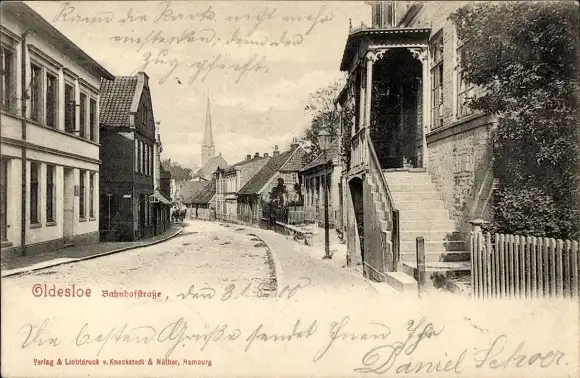 Kann die Karte nicht mehr
einstecken, denn der
Zug pfeift.
Oldesloe Bahnhofstraße, den 3.
Die besten Grüße sendet Ihnen Ihr
Daniel
Verlag & Lichtdruck v. Knackstedt & Näther, Hamburg